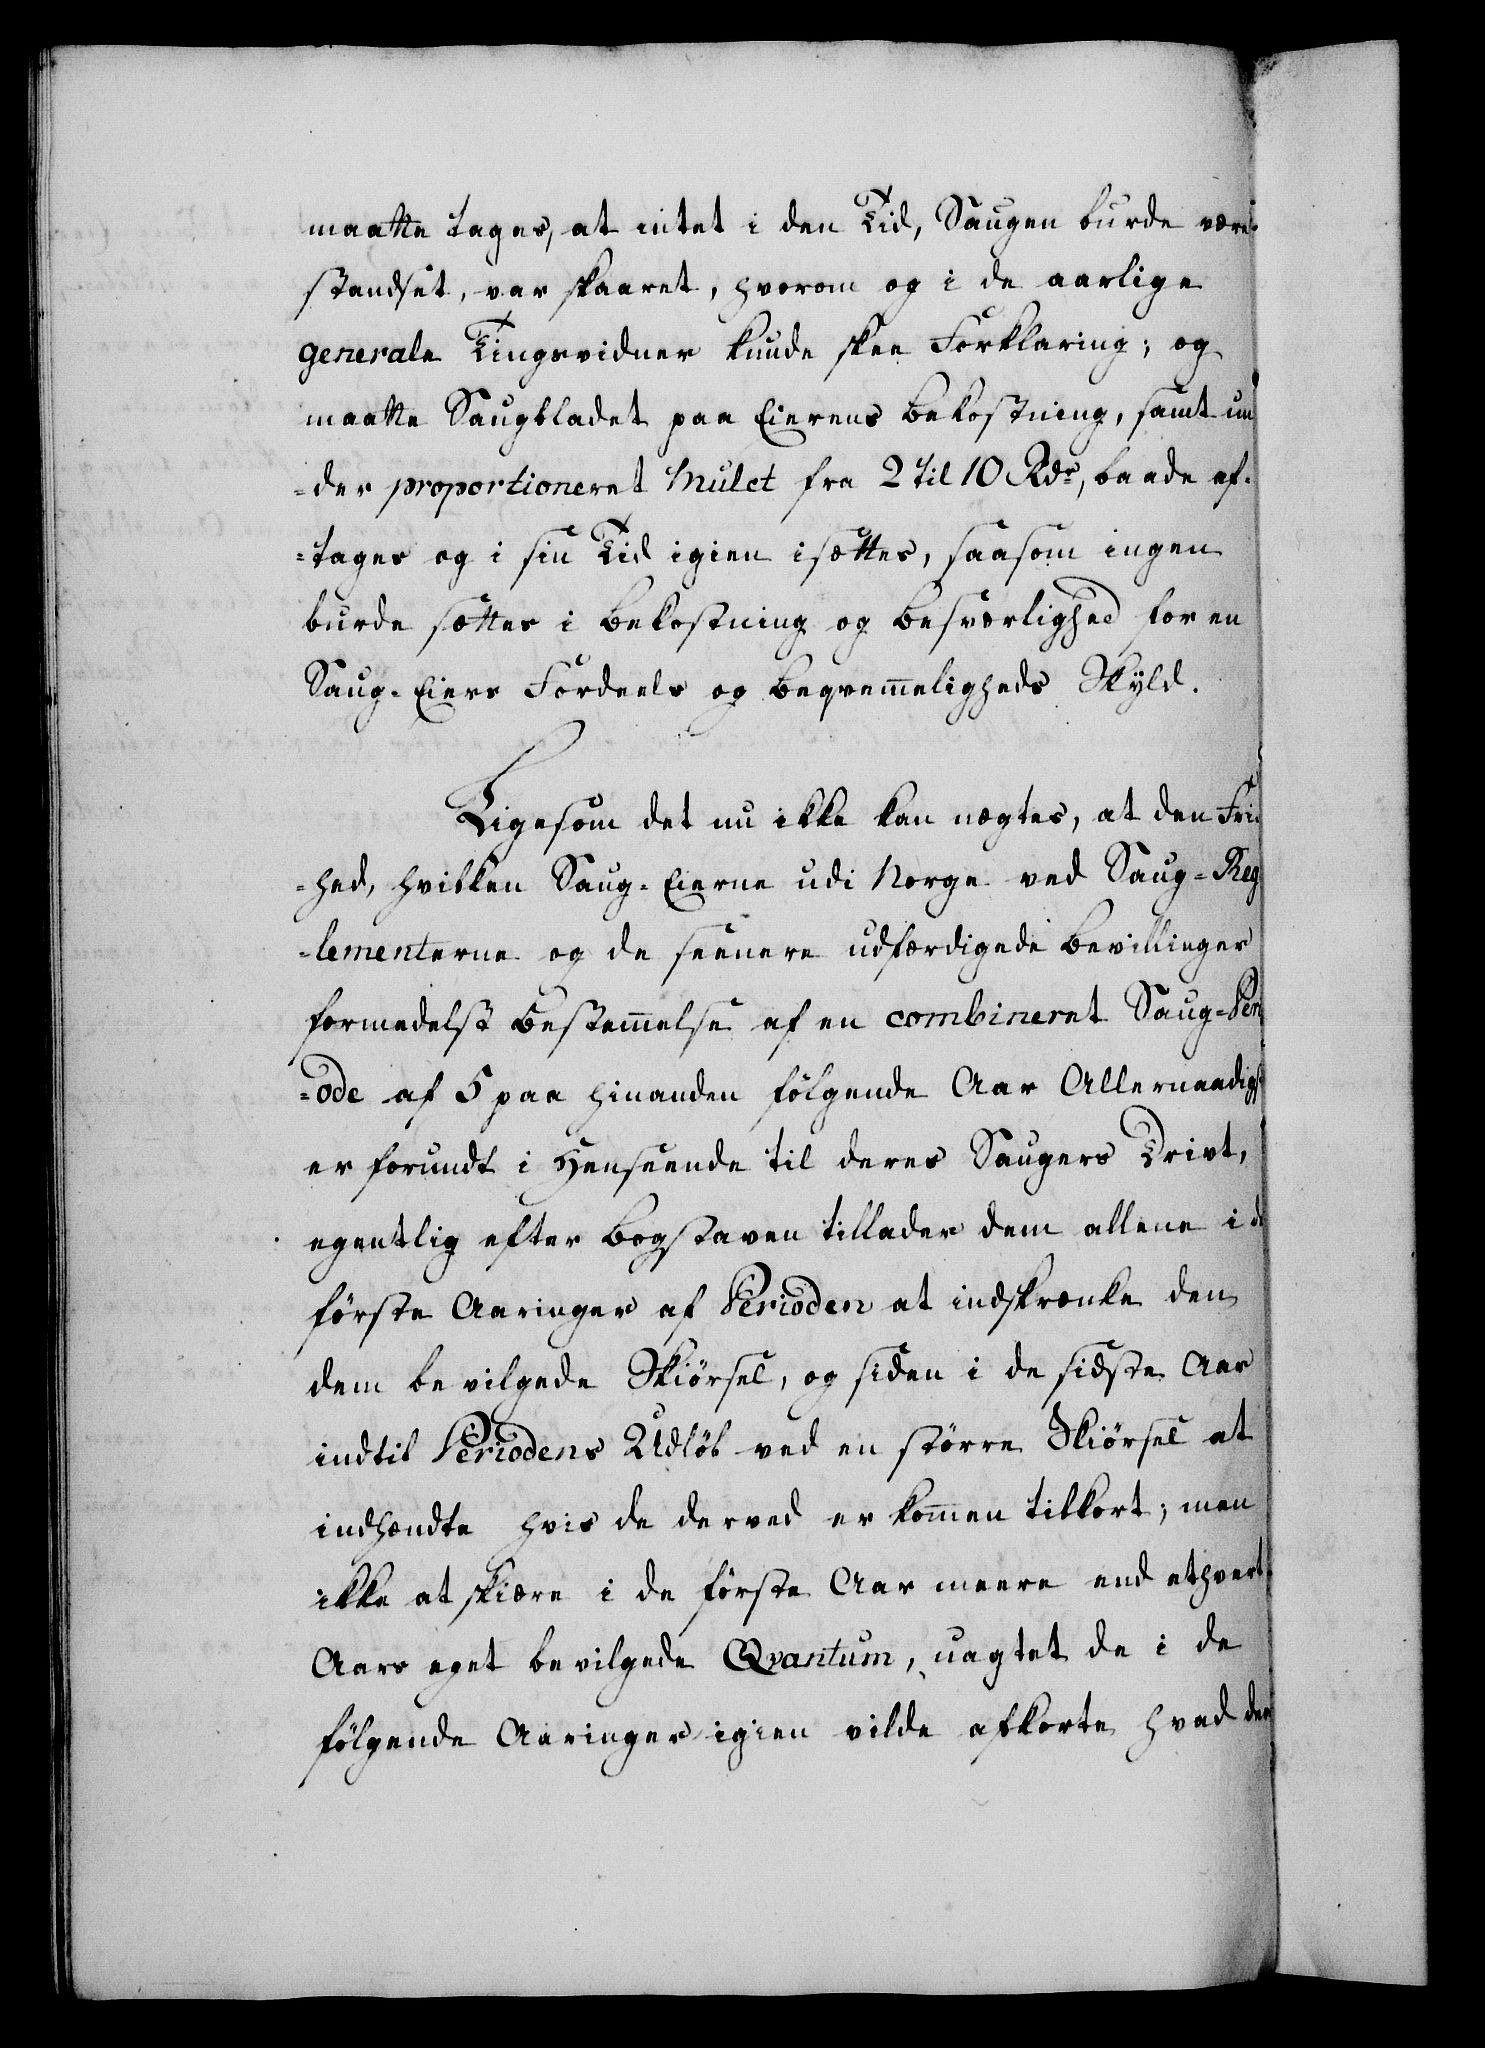 maatte tages, at intet i den Tid, Saugen burde være
standset, var skaaret, hvorom og i de aarlige
generale Tingsvidner kunde skee Forklaring; og
maatte Saugbladet paa Eierens Bekostning, samt un
-der proportioneret Mulct fra 2 til 10 Rdr, baade af-
-tages og i sin Tid igien isættes, saasom ingen
burde sættes i Bekostning og Besværlighed for en
Saug-Eiers Fordeels og Beqvemmeligheds Skyld.
Ligesom det nu ikke kan nægtes, at den Fri
-hed, hvilken Saug-Eierne udi Norge ved Saug-Reg
-lementerne og de seenere udfærdigede Bevillinger
formedelst Bestemmelse af en combineret Saug-Peri
-ode af 5 paa hinanden følgende Aar Allernaadigst
er forundt i Henseende til deres Saugers Drivt,
egentlig efter Bogstaven tillader dem allene i de
første Aaringer af Perioden at indskrænke den
dem bevilgede Skiørsel, og siden i de sidste Aar
indtil Periodens Udløb ved en større Skiørsel at
indhændte hvis de derved er kommen tilkort; men
ikke at skiære i de første Aar meere end ethvert
Aars eget bevilgede Qvantum, uagtet de i de
følgende Aaringer igien vilde afkorte hvad der